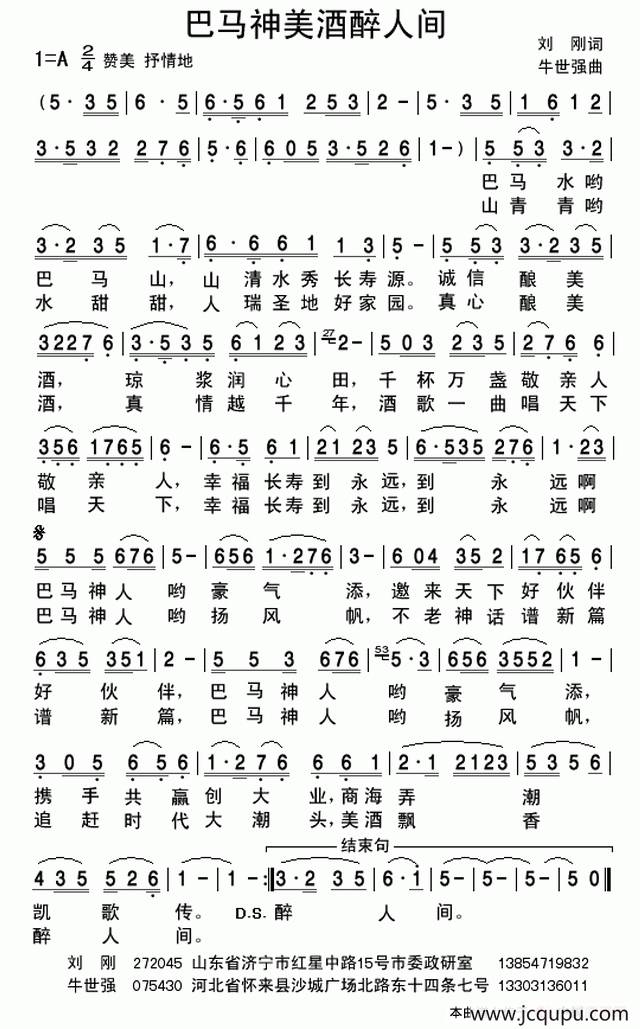 巴马神美酒醉人间
1=A 2/4 赞美 抒情地
刘 刚词
牛世强曲
(5· 35 | 6· 5 | 6·561 253 | 2 - | 5· 35 | 16 12 |
3·532 276 | 5·6 | 605 3·526 | 1 - ) | 5 53 3·2 |
巴 马 水 哟
山 青 青 哟
3·2 35 1·7 | 6·661 13 | 5 - | 5 53 3·235 |
巴 马 山, 山 清 水 秀 长 寿 源。 诚 信 酿 美
水 甜 甜, 人 瑞 圣 地 好 家 园。 真 心 酿 美
32276 | 3·535 6123 | 27 2 - | 503 235 | 276 6 |
酒, 琼 浆 润 心 田, 千 杯 万 盏 敬 亲 人
酒, 真 情 越 千 年, 酒 歌 一 曲 唱 天 下
356 1765 | 6 - | 6·5 61 | 21 23 | 5 - | 6·535 276 | 1·23 |
敬 亲 人, 幸 福 长 寿 到 永 远, 到 永 远 啊
唱 天 下, 幸 福 长 寿 到 永 远, 到 永 远 啊
5 5 5 676 | 5 - | 656 1·276 | 3 - | 604 352 | 17 65 | 6 · |
巴 马 神 人 哟 豪 气 添, 邀 来 天 下 好 伙 伴
巴 马 神 人 哟 扬 风 帆, 不 老 神 话 谱 新 篇
635 351 | 2 - | 5 5 3 676 | 53 5·3 | 656 3552 | 1 - |
好 伙 伴, 巴 马 神 人 哟 豪 气 添,
谱 新 篇, 巴 马 神 人 哟 扬 风 帆,
3 05 656 | 1·276 | 661 | 2·1 2123 | 5356 |
携 手 共 赢 创 大 业, 商 海 弄 潮
追 赶 时 代 大 潮 头, 美 酒 飘 香
结束句
435 526 | 1 - | 1 - :‖ 3·2 35 | 6·1 | 5 - | 5 - | 5 - | 50 ‖
凯 歌 传。 D.S. 醉 人 间。
醉 人 间。
刘 刚 272045 山东省济宁市红星中路15号市委政研室 13854719832
牛世强 075430 河北省怀来县沙城广场北路东十四条七号 13303136011
本曲 www.jcqupu.com